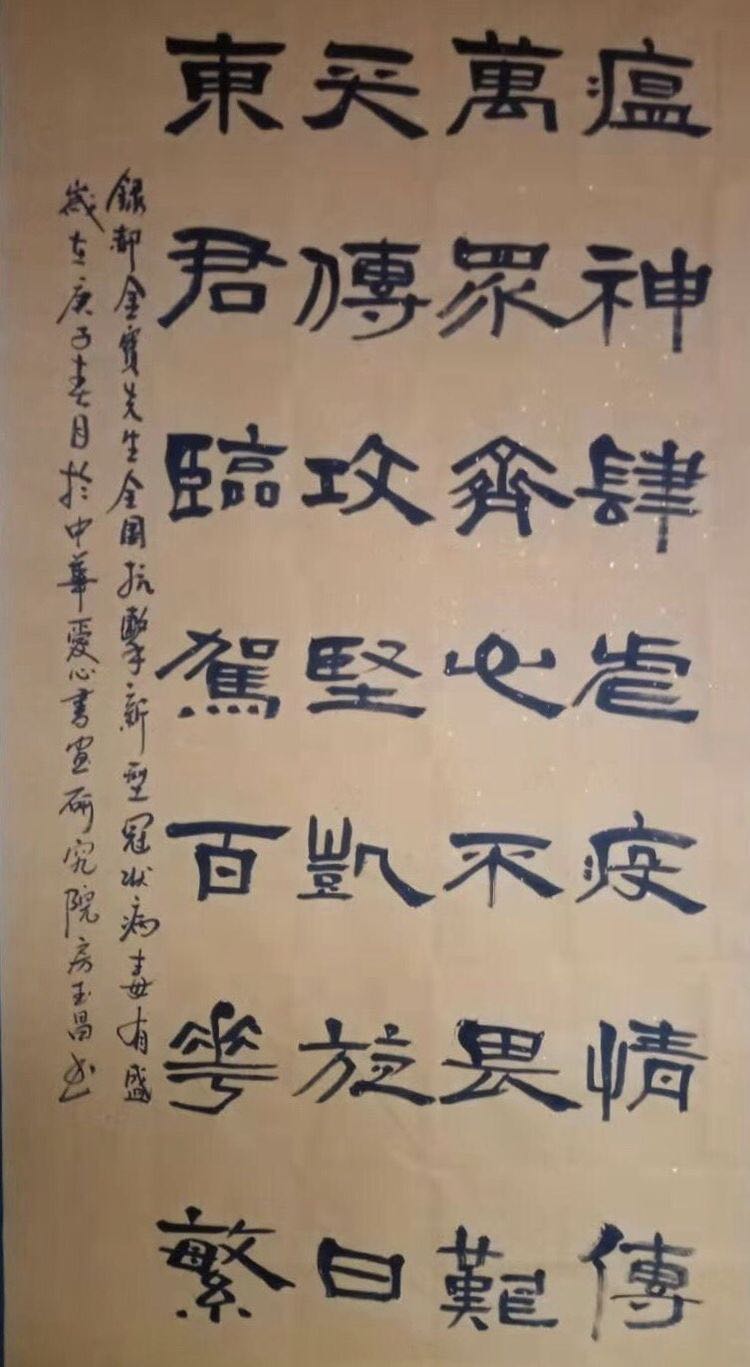 瘟神肆虐疫情傳
萬眾齊心不畏難
傳攻堅凱旋日
東君臨駕百華繁
錄郝金寶先生全国抗擊新型冠状病毒有感
歲在庚子春月於中華愛心書画研究院房玉昌书